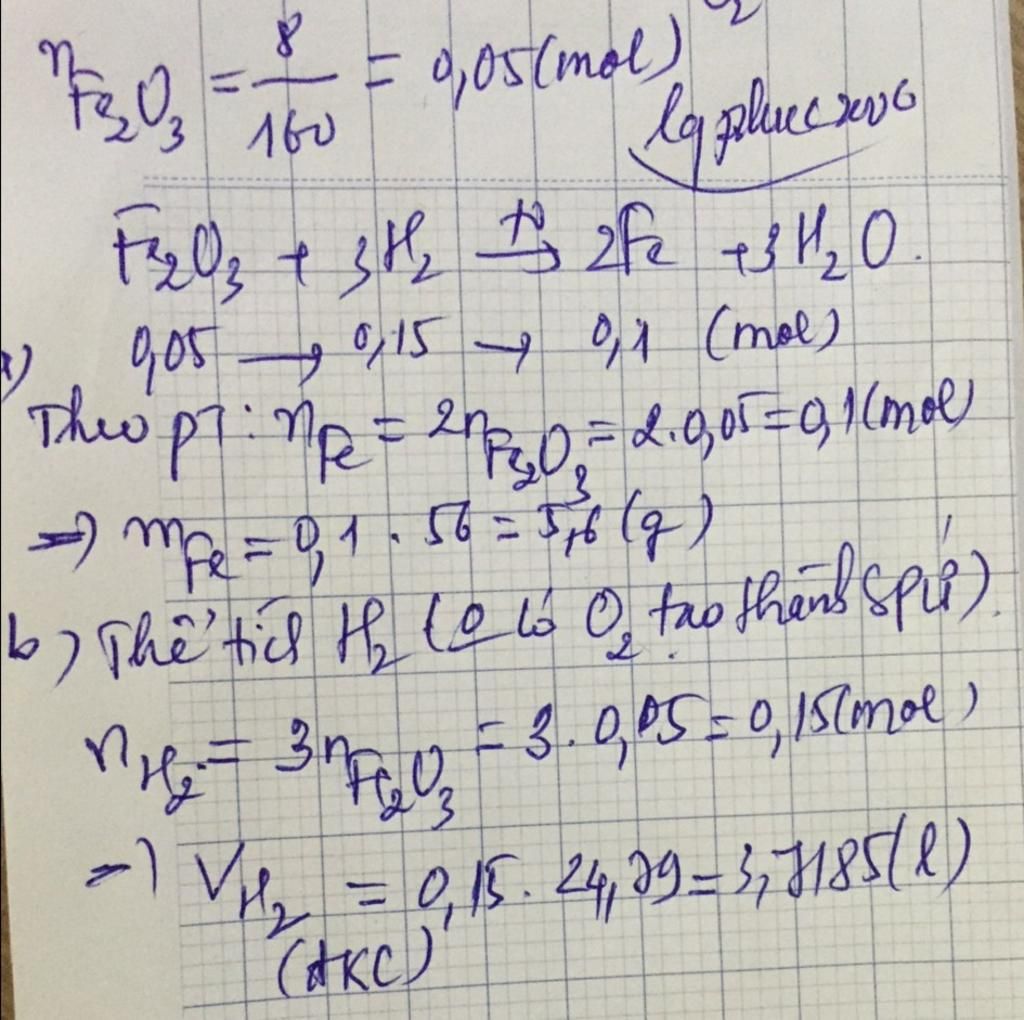 nFe2O3 = 8/160 = 0,05 (mol)
Fe2O3 + 3H2 t0→ 2Fe + 3H2O.
0,05 → 0,15 → 0,1 (mol)
Theo pT: nFe = 2nFe2O3 = 2.0,05 = 0,1 (mol)
=) mFe = 0,1 . 56 = 5,6 (g)
b) Thể tích H2 ( có O2 tạo thành ).
nH2 = 3nFe2O3 = 3. 0,05 = 0,15 (mol)
=) VH2 = 0,15. 24,79 = 3,7185 (l)
(đKC)